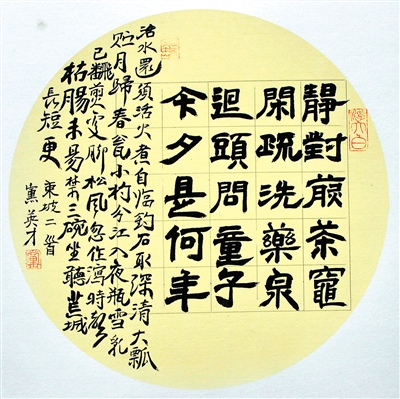 靜對煎茶竈
閑疏洗藥泉
迴頭問童子
今夕是何年
活水還須活火煮自临釣石取深清大瓢
貯月歸春瓮小杓分江入夜瓶雪乳
已翻煎处脚松風忽作瀉時聲
枯腸未易禁三碗坐聽荒城
長短更
東坡二首
黨英才